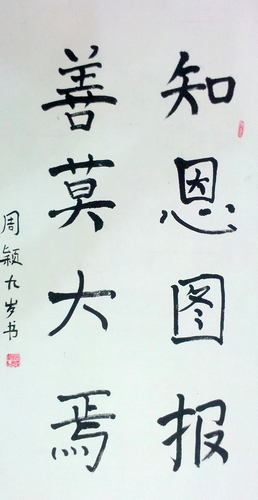 知恩图报
善莫大焉
周颖九岁书